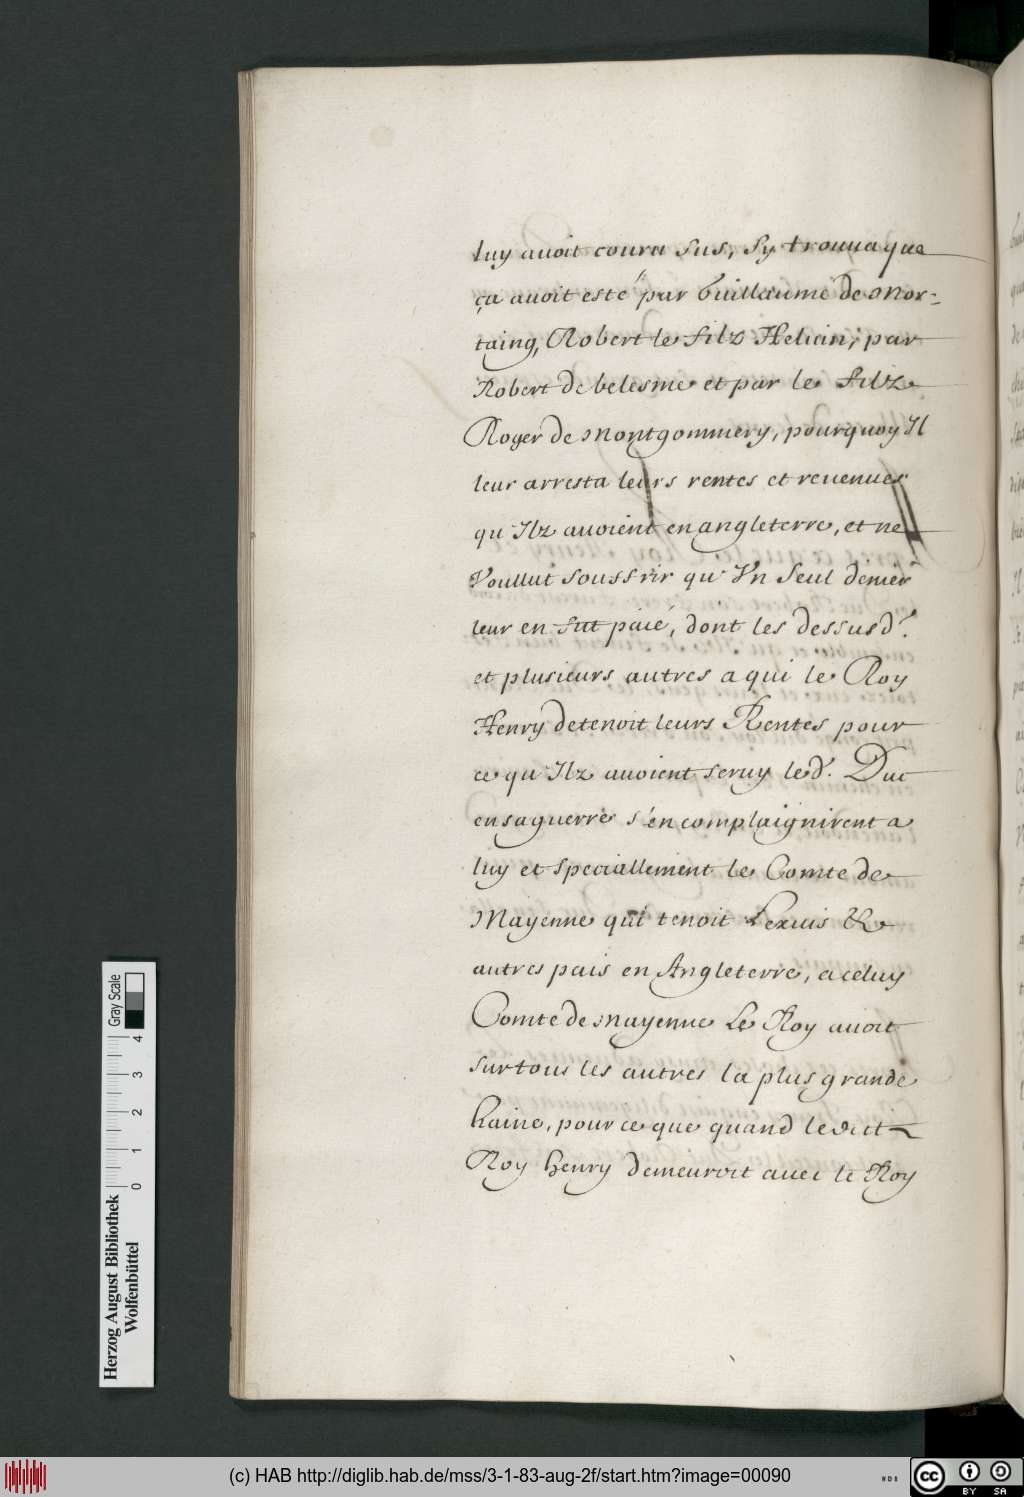 luy avoit couru sus, sy trouua que
ça avoit esté par Guillaume de Mor-
taing, Robert le filz Helicin, par
Robert de belesme et par le filz
Roger de Montgommery, pourquoy Il
leur arresta leurs rentes et reuenues
qu'Ilz avoient en angleterre, et ne
Voullut souffrir qu'Vn seul denier
leur en fut paié, dont les dessusd.
et plusieurs autres a qui le Roy
Henry detenoit leurs Rentes pour
ce qu'Ilz avoient seruy led. Duc
en sa guerre s'en complaignirent a
luy et speciallement le Comte de
Mayenne qui tenoit Lexuis &
autres pais en Angleterre, a celuy
Comte de Mayenne Le Roy avoit
sur tous les autres la plus grande
haine, pour ce que quand ledict
Roy henry demeuroit auec le Roy
Herzog August Bibliothek
Wolfenbüttel
Gray Scale
0 1 2 3 4
(c) HAB http://diglib.hab.de/mss/3-1-83-aug-2f/start.htm?image=00090
WDB
cc BY SA